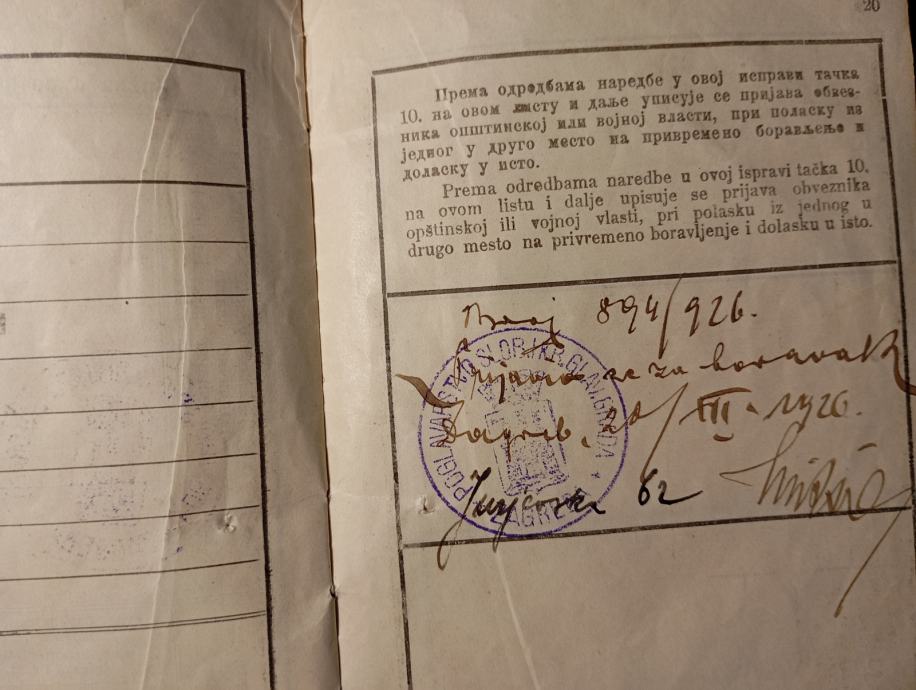 20
Према одредбама наредбе у овој исправи тачка
10. на овом листу и даље уписује се пријава обвез-
ника општинској или војној власти, при поласку из
једног у друго место на привремено борављење и
доласку у исто.
Prema odredbama naredbe u ovoj ispravi tačka 10.
na ovom listu i dalje upisuje se prijava obveznika
opštinskoj ili vojnoj vlasti, pri polasku iz jednog u
drugo mesto na privremeno boravljenje i dolasku u isto.
Broj 894/926.
Prijavio se za boravak
Zagreb, III. 1926.
62
POGLAVARSTVO SLOB. I KR. GLAV. GRADA
ZAGREB